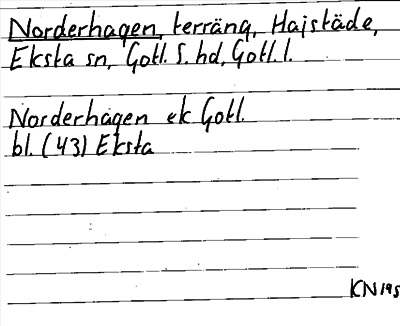 Norderhagen, terräng, Hajstäde,
Eksta sn, Gotl. S. hd, Gotl. l.
Norderhagen ek Gotl.
bl. (43) Eksta
KN 195